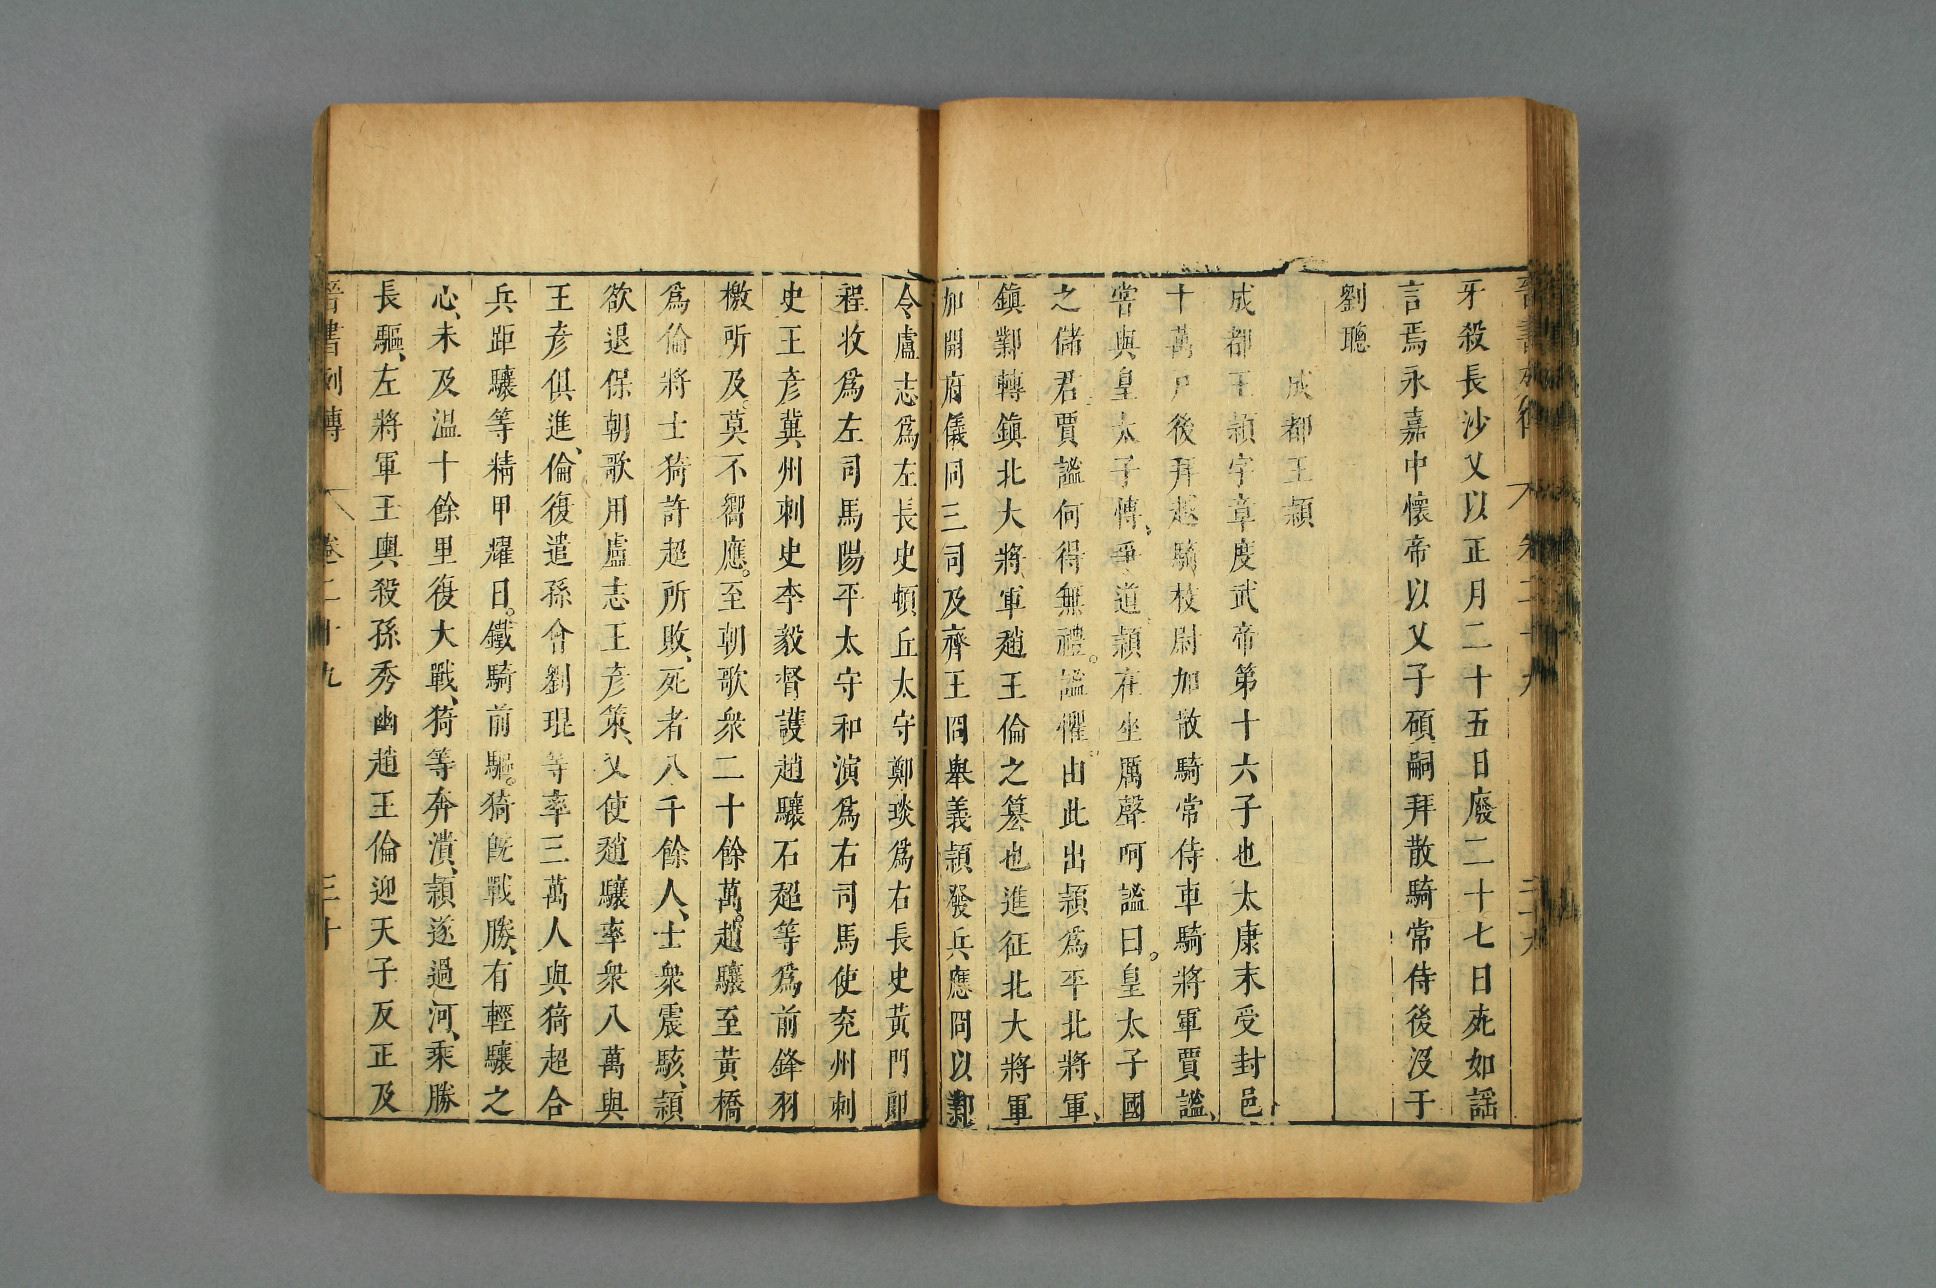 牙殺長沙乂以正月二十五日廢二十七日死如謡
言焉永嘉中懷帝以乂子碩嗣拜散騎常侍後没于
劉聰
成都王頴
成都王頴字章度武帝第十六子也太康末受封邑
十萬戸後拜越騎校尉加散騎常侍車騎將軍賈謐、
甞與皇太子博、爭道頴在坐厲聲呵謐曰。皇太子國
之儲君賈謐何得無禮。謐懼。由此出頴爲平北將軍、
鎮鄴轉鎮北大將軍趙王倫之簒也進征北大將軍
加開府儀同三司及齊王冏舉義頴發兵應冏以鄴
令盧志爲左長史頓丘太守鄭琰爲右長史黃門郎
程收爲左司馬陽平太守和演爲右司馬使兖州刺
史王彦冀州刺史李毅督護趙驤石超等爲前鋒羽
檄所及。莫不響應。至朝歌衆二十餘萬。趙驤至黃橋
爲倫將士猗許超所敗、死者八千餘人、士衆震駭、頴
欲退保朝歌用盧志王彦策、又使趙驤率衆八萬與
王彦俱進、倫復遣孫會劉琨等率三萬人與猗超合
兵距驤等精甲耀日。鐵騎前驅。猗旣戰勝、有輕驤之
心、未及温十餘里復大戰、猗等奔潰、頴遂過河、乘勝
長驅、左將軍王輿殺孫秀幽趙王倫迎天子反正及
晉書列傳 卷二十九 三十